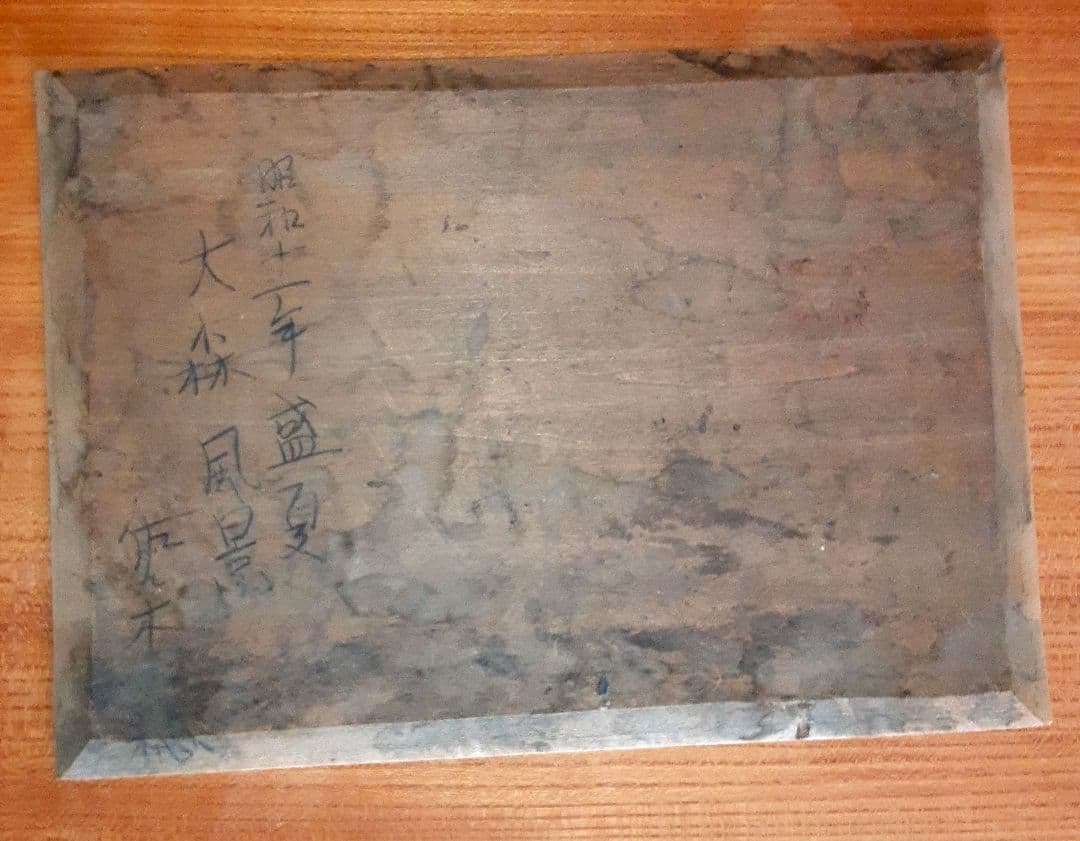 昭和十一年 盛夏
大森 風景